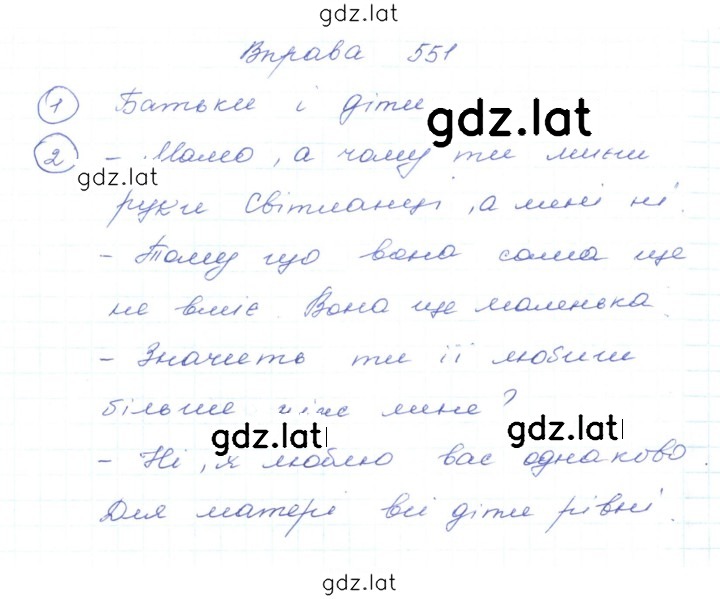 gdz.lat
Вправа 551
1 Батьки і діти
gdz.lat
2 - Мамо, а чому ти миєш
gdz.lat
руки Світланці, а мені ні.
- Тому що вона сама ще
не вміє. Вона ще маленька.
- Значить ти її любиш
більше ніж мене?
gdz.lat
gdz.lat
- Ні, я люблю вас однаково.
Для матері всі діти рівні.
gdz.lat